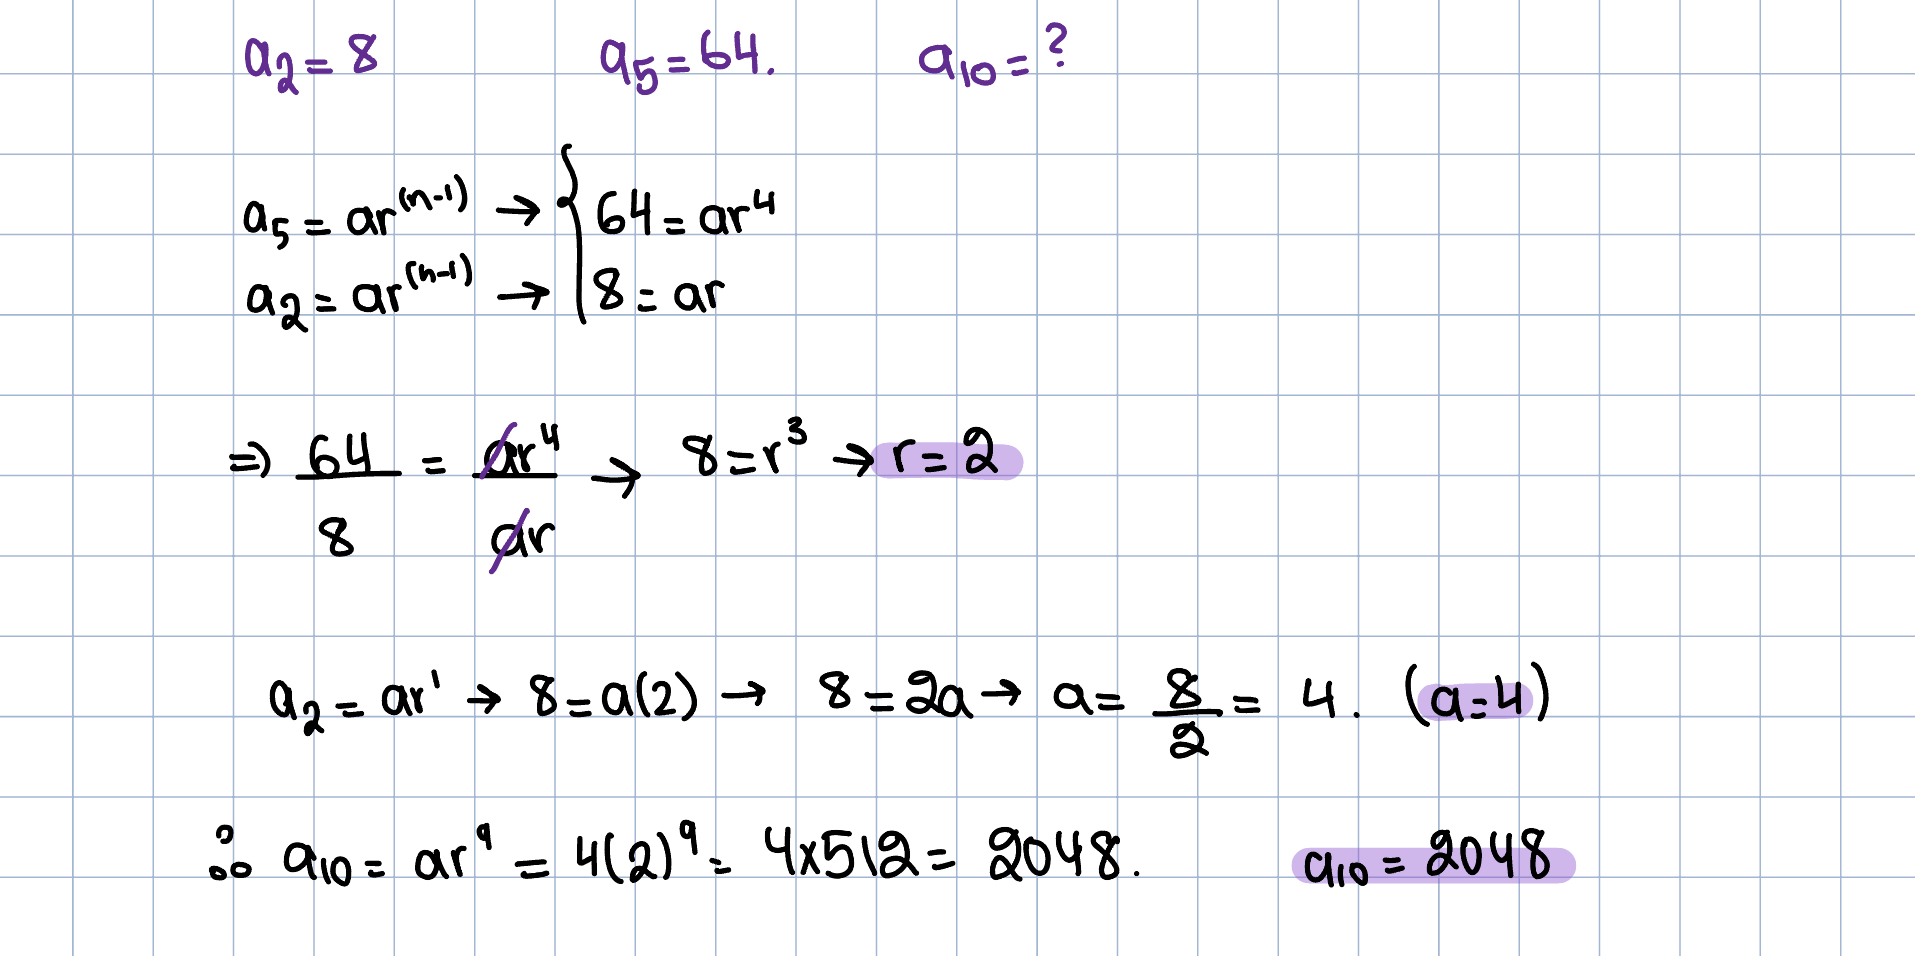 a₂ = 8 a₅ = 64. a₁₀ = ?
a₅ = ar⁽ⁿ⁻¹⁾ → { 64 = ar⁴
a₂ = ar⁽ⁿ⁻¹⁾ → { 8 = ar
⇒ 64/8 = ar⁴/ar → 8 = r³ → r = 2
a₂ = ar¹ → 8 = a(2) → 8 = 2a → a = 8/2 = 4. (a = 4)
∴ a₁₀ = ar⁹ = 4(2)⁹ = 4x512 = 2048. a₁₀ = 2048